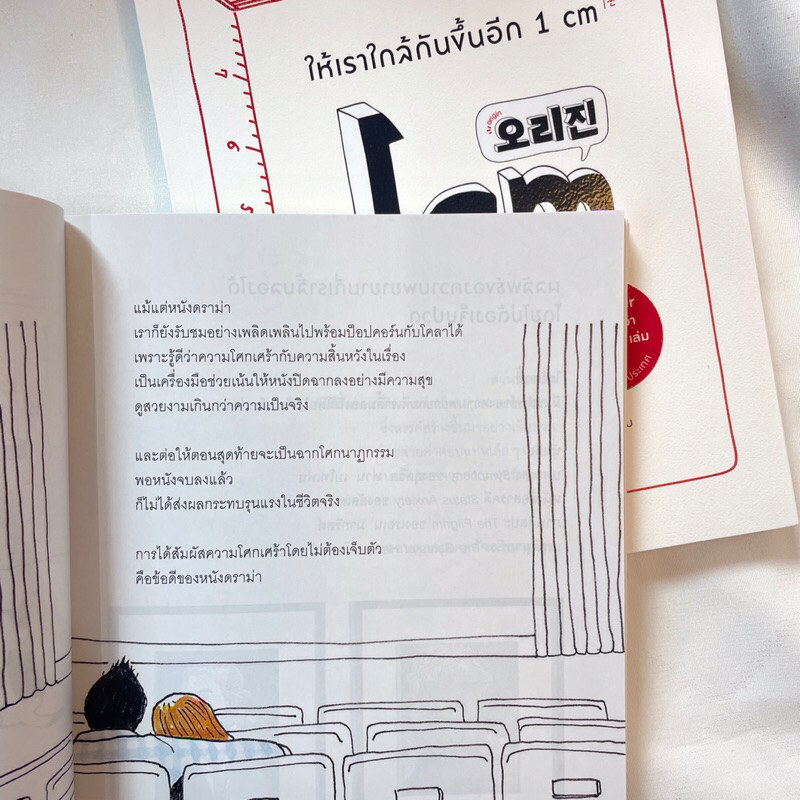 ให้เราใกล้กันขึ้นอีก 1 cm
오리진
1cm
เล่ม
แม้แต่หนังดราม่า
เราก็ยังรับชมอย่างเพลิดเพลินไปพร้อมป๊อปคอร์นกับโคลาได้
เพราะรู้ดีว่าความโศกเศร้ากับความสิ้นหวังในเรื่อง
เป็นเครื่องมือช่วยเน้นให้หนังปิดฉากลงอย่างมีความสุข
ดูสวยงามเกินกว่าความเป็นจริง
และต่อให้ตอนสุดท้ายจะเป็นฉากโศกนาฏกรรม
พอหนังจบลงแล้ว
ก็ไม่ได้ส่งผลกระทบรุนแรงในชีวิตจริง
การได้สัมผัสความโศกเศร้าโดยไม่ต้องเจ็บตัว
คือข้อดีของหนังดราม่า